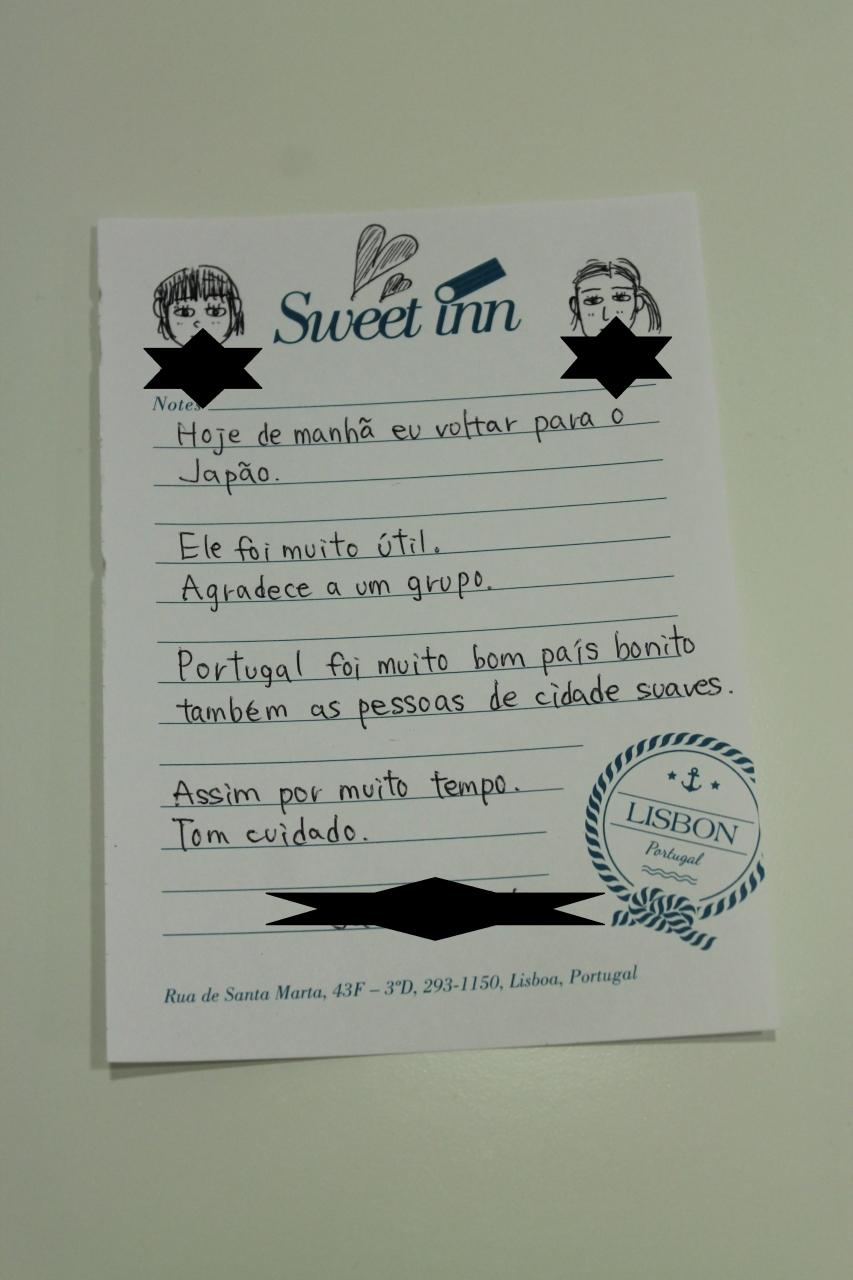 Sweet inn
Notes
Hoje de manhã eu voltar para o
Japão.
Ele foi muito útil.
Agradece a um grupo.
Portugal foi muito bom país bonito
também as pessoas de cidade suaves.
Assim por muito tempo.
Tom cuidado.
LISBON
Portugal
Rua de Santa Marta, 43F – 3ºD, 293-1150, Lisboa, Portugal